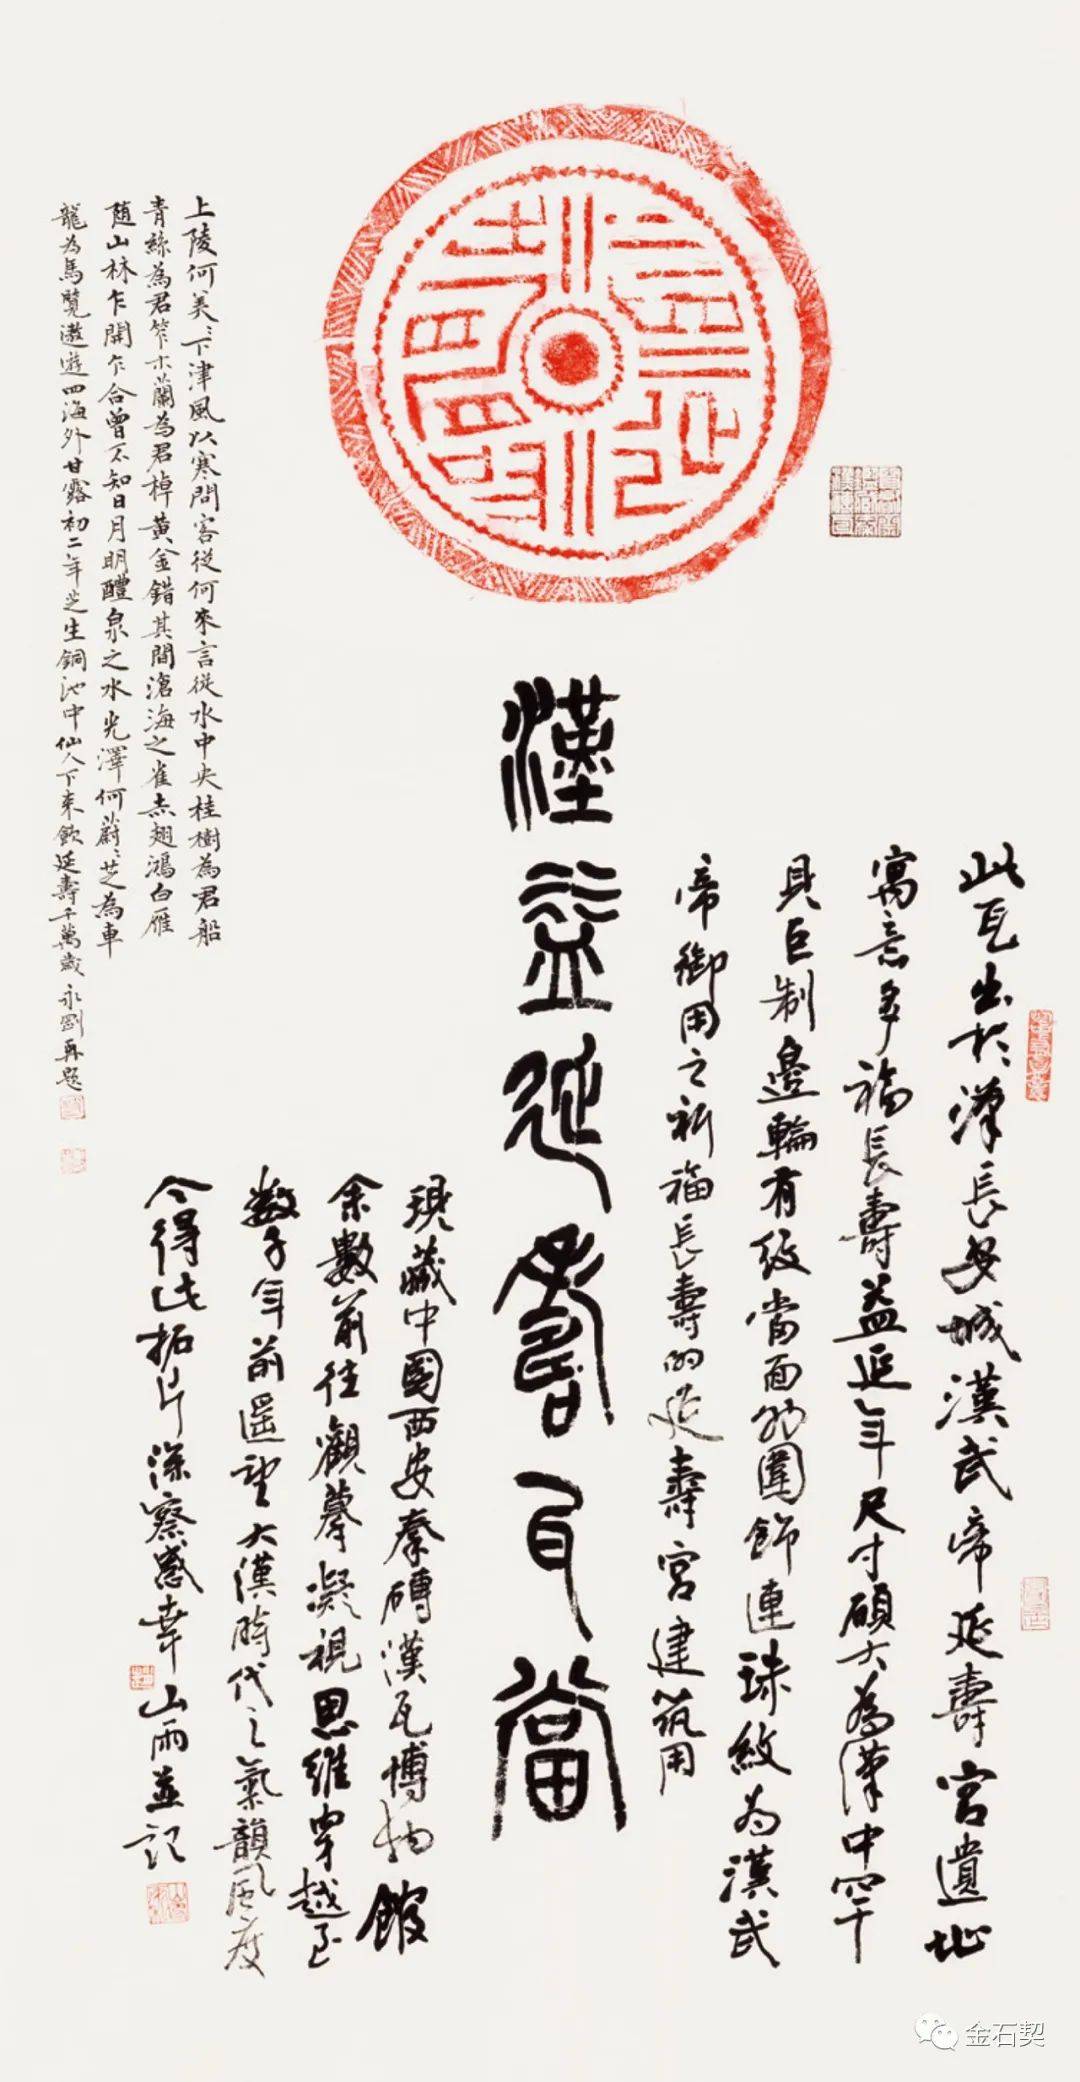 益延壽
漢益延壽瓦當
此瓦出於漢長安城漢武帝延壽宮遺址
寓意多福長壽益延年尺寸碩大為漢中罕
具巨制邊輪有紋當面外圍飾連珠紋為漢武
帝御用之祈福長壽的延壽宮建筑用
現藏中國西安秦磚漢瓦博物館
余數前往觀摹凝視思維穿越至
數千年前遥望大漢時代之氣韻風度
今得此拓片深察感幸山雨並記
上陵何美美下津風以寒問客從何來言從水中央桂樹為君船
青絲為君笮木蘭為君棹黃金錯其間滄海之雀赤翅鴻白雁
隨山林乍開乍合曾不知日月明醴泉之水光澤何蔚蔚芝為車
龍為馬覽遨遊四海外甘露初二年芝生銅池中仙人下來飲延壽千萬歲永剛再題
金石契